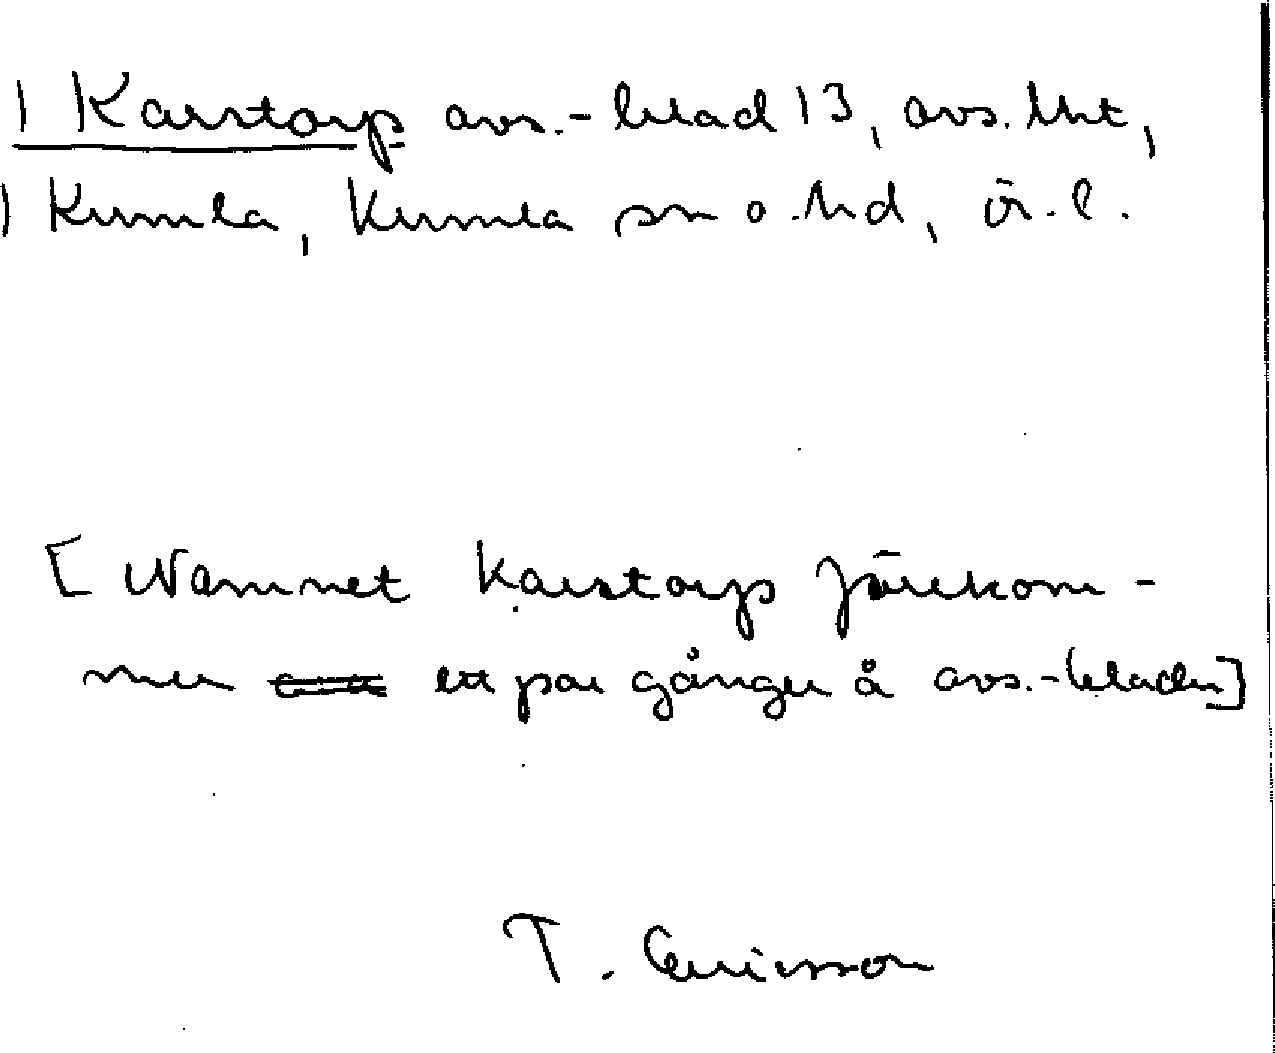 | Karstorp avs.-blad 13, avs. lht,
| Kumla, Kumla sn o. hd, ör. l.
[Namnet Karstorp förekom-
mer ett par gånger å avs.-bladen]
T. Ericsson